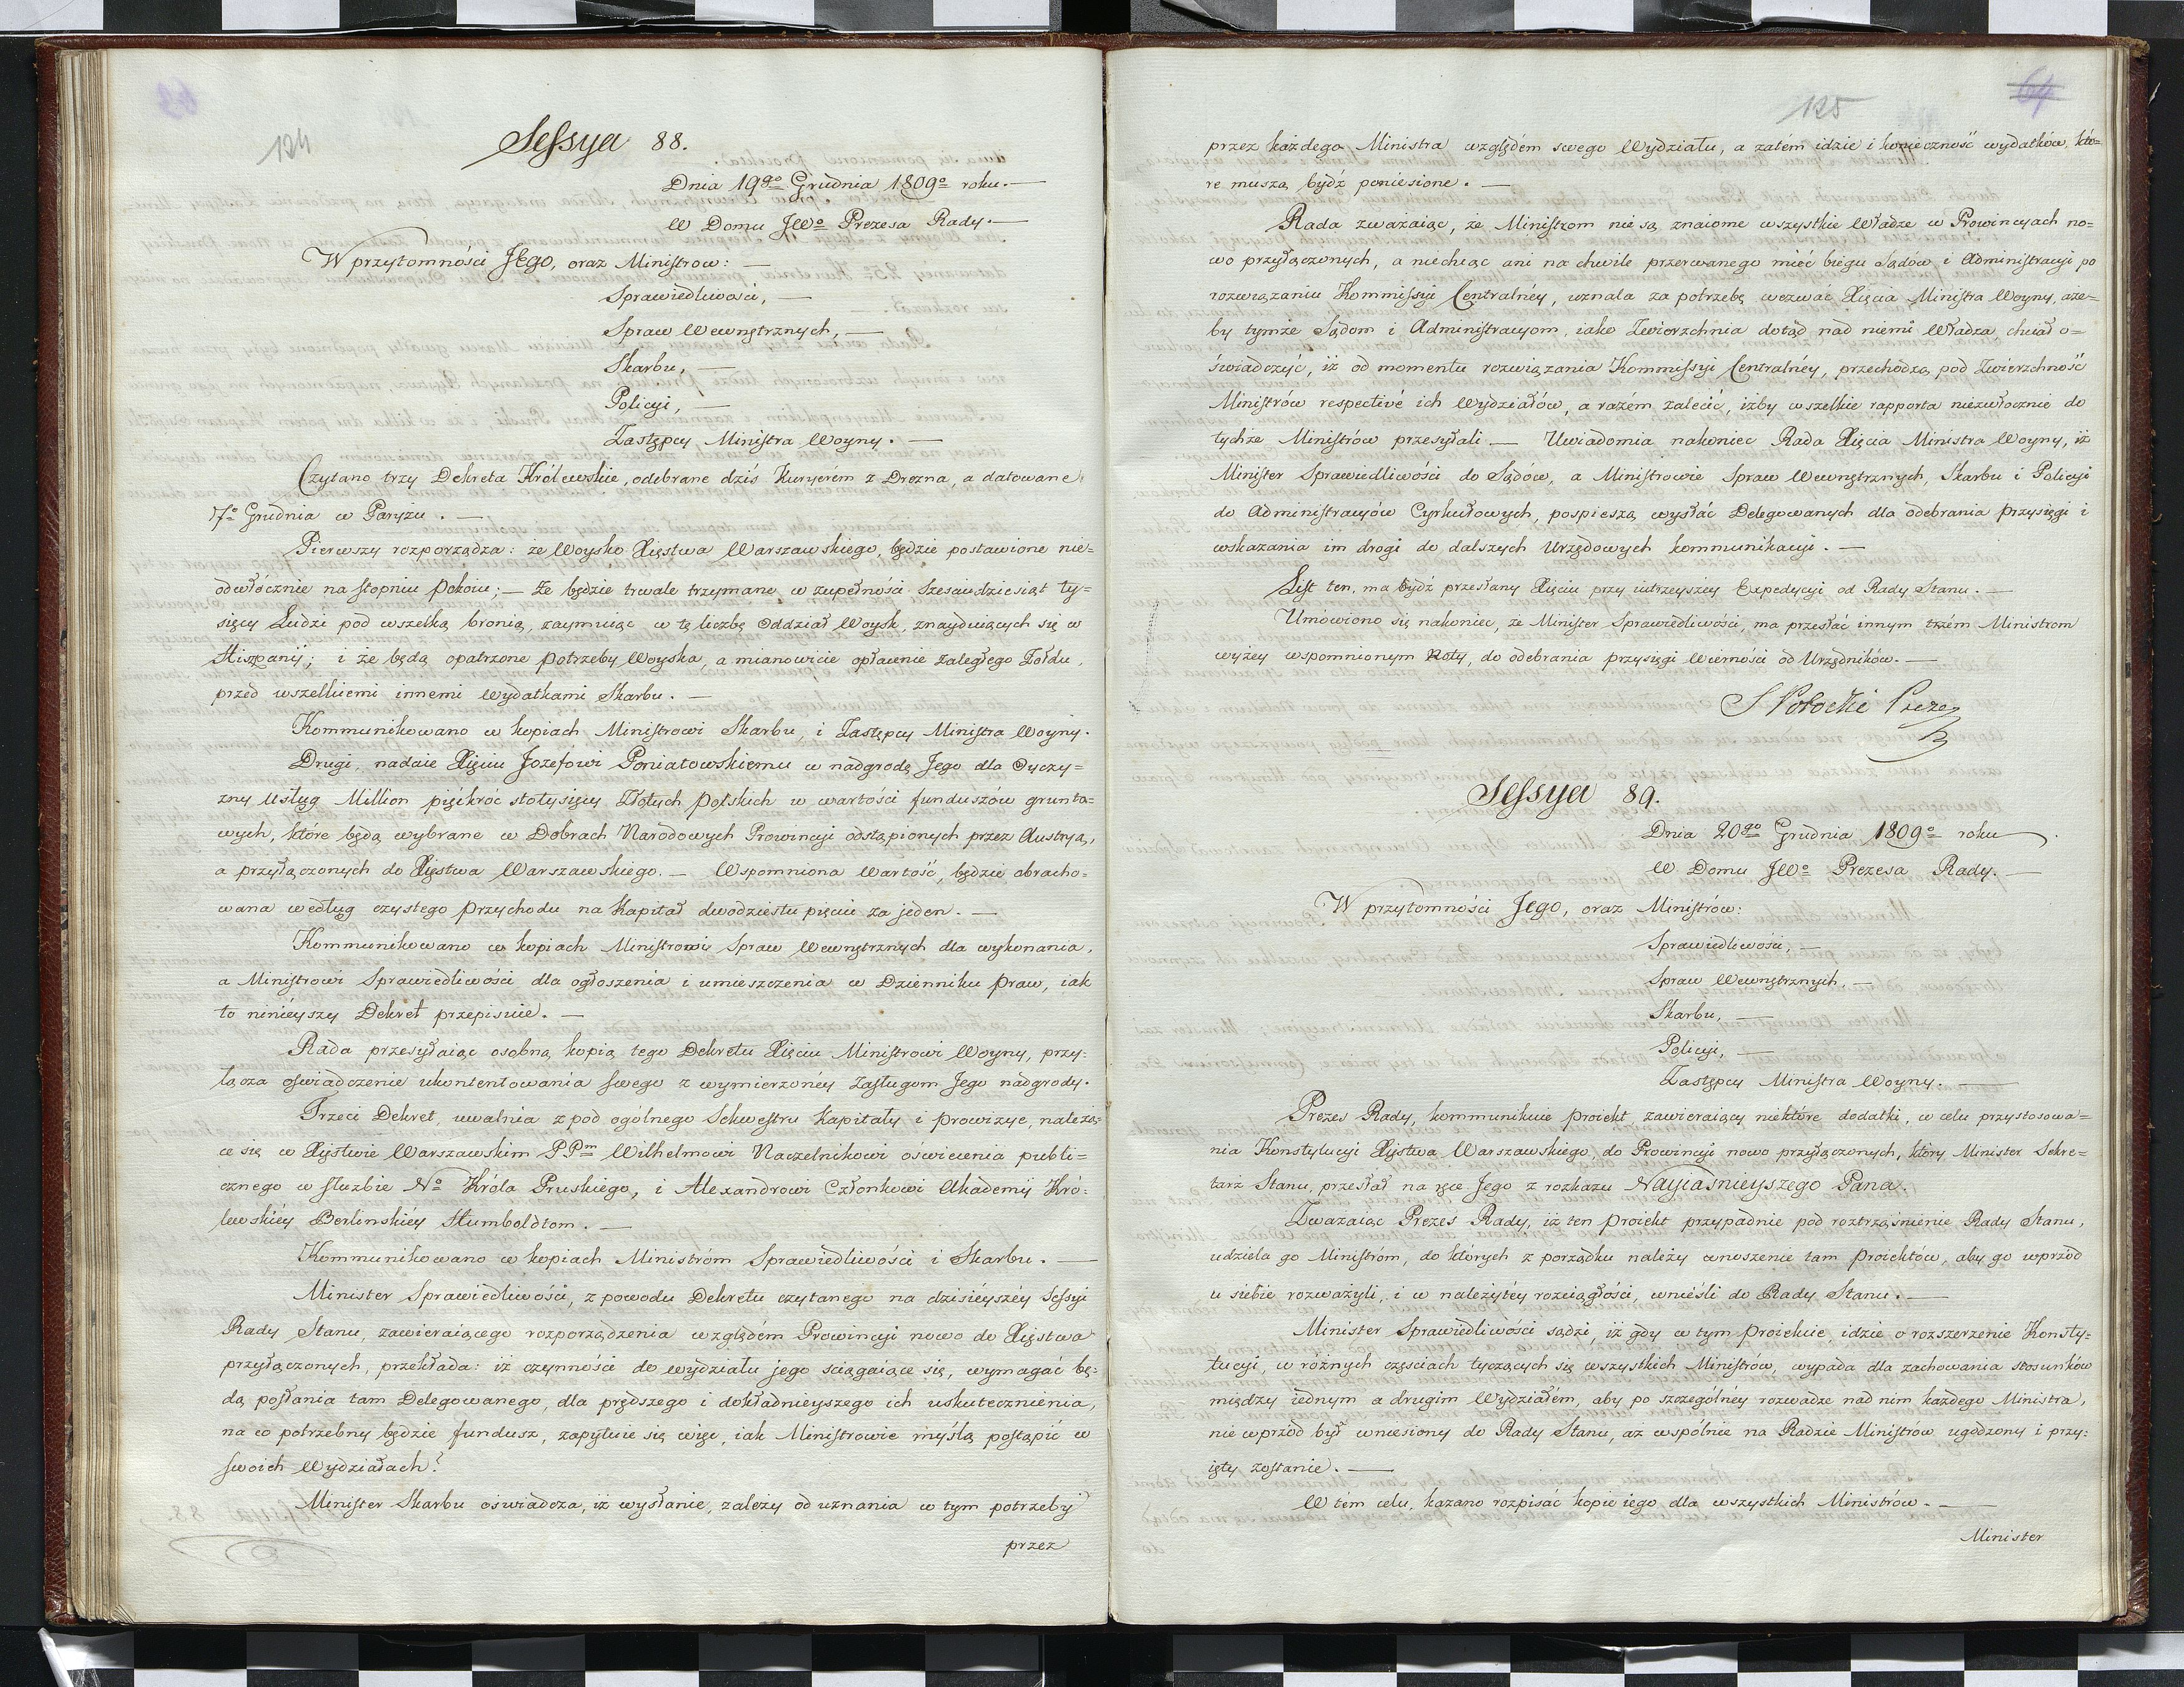 124
Sessya 88.
Dnia 19go Grudnia 1809o roku.—
W Domu JWo Prezesa Rady.—
W przytomności JEgo, oraz Ministrow:—
Sprawiedliwości,—
Spraw Wewnętrznych,—
Skarbu,—
Policyi,—
Zastępcy Ministra Woyny.—
Czytano trzy Dekreta Królewskie, odebrane dziś Kuryerém z Drezna, a datowane
7o Grudnia w Paryżu.—
Pierwszy rozporządza: że Woysko Xięstwa Warszawskiego, będzie postawione nie=
odwłócznie na stopniu Pokoiu;— Że będzie trwale trzymane w zupełności szescudziesiąt ty=
sięcy Ludzi pod wszelką bronią, zaymuiąc w tę liczbę Oddział Woysk, znayduiących się w
Hiszpanij; i że będą opatrzone potrzeby Woyska, a mianowicie opłacenie zaległego Żołdu,
przed wszelkiemi innemi wydatkami Skarbu.—
Kommunikowano w kopiach Ministrowi Skarbu, i Zastępcy Ministra Woyny.
Drugi, nadaie Xięciu Jozefowi Poniatowskiemu w nadgrodę Jego dla Oyczy=
zny usług Million pięckróc stotysięcy Złotych Polskich w wartości funduszów grunto=
wych, które będą wybrane w Dobrach Narodowych Prowincyi odstąpionych przez Austryą,
a przyłączonych do Xięstwa Warszawskiego.— Wspomniona Wartość, będzie obracho=
wana według czystego przychodu na Kapitał dwódziestu pięciu za jeden.—
Kommunikowano w kopiach Ministrowi Spraw Wewnętrznych dla wykonania,
a Ministrowi Sprawiedliwości dla ogłoszenia i umieszczenia w Dzienniku Praw, iak
to ninieyszy Dekret przepisuie.—
Rada przesyłaiąc osobną kopią tego Dekretu Xięciu Ministrowi Woyny, przy=
łącza oświadczenie ukontentowania swego z wymierzonéy zasługom Jego nadgrody.
Trzeci Dekret, uwalnia z pod ogólnego Sekwestru Kapitały i prowizye, należą=
ce się w Xięstwie Warszawskim PPm Wilhelmowi Naczelnikowi oświecenia publi=
cznego w służbie No Króla Pruskiego, i Alexandrowi Członkowi Akademij Kró=
lewskiéy Berlinskiéy Humboldtom.—
Kommunikowano w kopiach Ministróm Sprawiedliwości i Skarbu.—
Minister Sprawiedliwości, z powodu Dekretu czytanego na dzisieyszéy Sessyi
Rady Stanu, zawieraiącego rozporządzenia względém Prowincyi nowo do Xięstwa
przyłączonych, przekłada: iż czynności do wydziału jego sciągaiące się, wymagać bę=
dą posłania tam Delegowanego, dla prędszego i dokładnieyszego ich uskutecznienia,
na co potrzebny będzie fundusz, zapytuie się więc, iak Ministrowie myślą postąpić w
swoich Wydziałach?
Minister Skarbu oświadcza, iż wysłanie, zależy od uznania w tym potrzeby
przez
125
64
przez każdego Ministra względém swego Wydziału, a zatém idzie i konieczność wydatków, któ=
re muszą bydź poniesione.—
Rada zważaiąc, że Ministrom nie są znaiome wszystkie Władze w Prowincyach no=
wo przyłączonych, a niechcąc ani na chwile przerwanego mieć biegu Sądów i Administracyi po
rozwiązaniu Kommissyi Centralnéy, uznała za potrzebę wezwać Xięcia Ministra Woyny, aże=
by tymże Sądom i Administracyom, iako Zwierzchnia dotąd nad niemi Władza, chciał o=
świadczyć, iż od momentu rozwiązania Kommissyi Centralnéy, przechodzą pod Zwierzchność
Ministrów respectivé ich Wydziałów, a razém zalecić, iżby wszelkie rapporta niezwłocznie do
tychże Ministrów przesyłali— Uwiadomia nakoniec Rada Xięcia Ministra Woyny, iż
Minister Sprawiedliwości do Sądów, a Ministrowie Spraw Wewnętrznych, Skarbu i Policyi
do Administracyów Cyrkułowych, pospieszą wysłać Delegowanych dla odebrania przysięgi i
wskazania im drogi do dalszych Urzędowych kommunikacyi.—
List ten, ma bydź przesłany Xięciu przy iutrzeyszéy Expedycyi od Rady Stanu.—
Umówiono się nakoniec, że Minister Sprawiedliwości, ma przesłać innym trzém Ministrom
wyżey wspomnionym Roty, do odebrania przysięgi Wierności od Urzędników.—
S Potocki Prezes
Sessya 89.
Dnia 20go Grudnia 1809o roku.
W Domu JWo Prezesa Rady.—
W przytomności JEgo, oraz Ministrów:
Sprawiedliwości,—
Spraw Wewnętrznych,—
Skarbu,—
Policyi,—
Zastępcy Ministra Woyny.—
Prezes Rady, kommunikuie proiekt zawieraiący niektóre dodatki, w celu przystosowa=
nia Konstytucyi Xięstwa Warszawskiego, do Prowincyi nowo przyłączonych, który Minister Sekre=
tarz Stanu, przesłał na ręce Jego z rozkazu Nayiaśnieyszego Pana.
Zważaiąc Prezes Rady, iż ten proiekt przypadnie pod roztrząśnienie Rady Stanu,
udziela go Ministróm, do których z porządku należy wnoszenie tam proiektów, aby go wprzód
u siebie rozważyli, i w należytéy rozciągłości, wnieśli do Rady Stanu.—
Minister Sprawiedliwości sądzi, iż gdy w tym proiekcie, idzie o rozszerzenie Konsty=
tucyi, w różnych częściach tyczących się wszystkich Ministrów, wypada dla zachowania stosunków
między iednym a drugim Wydziałém, aby po szczególnéy rozwadze nad nim każdego Ministra,
nie wprzód był wniesiony do Rady Stanu, aż wspólnie na Radzie Ministrów ugodzony i przy=
ięty zostanie.—
W tém celu, kazano rozpisać kopie iego dla wszystkich Ministrów.—
Minister